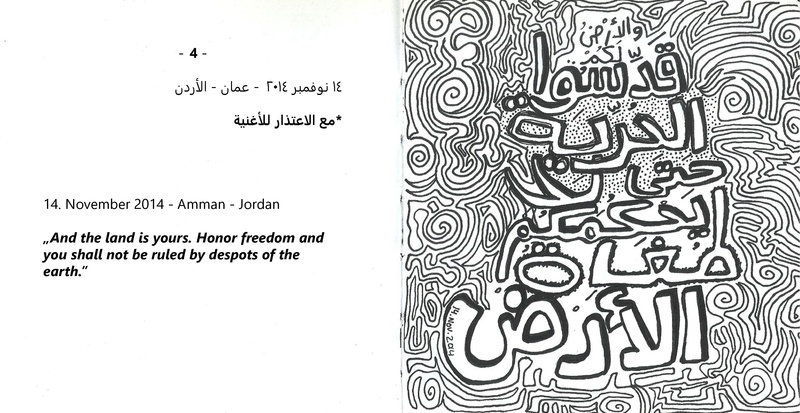 - 4 -
١٤ نوفمبر ٢٠١٤ - عمان - الأردن
*مع الاعتذار للأغنية
14. November 2014 - Amman - Jordan
„And the land is yours. Honor freedom and
you shall not be ruled by despots of the
earth.”
والأرْضُ
لَكُمْ
قدّسوا
الحُرّية
حتى لا
يحكمكم
طُغاة
الأرض
14.Nov.2014